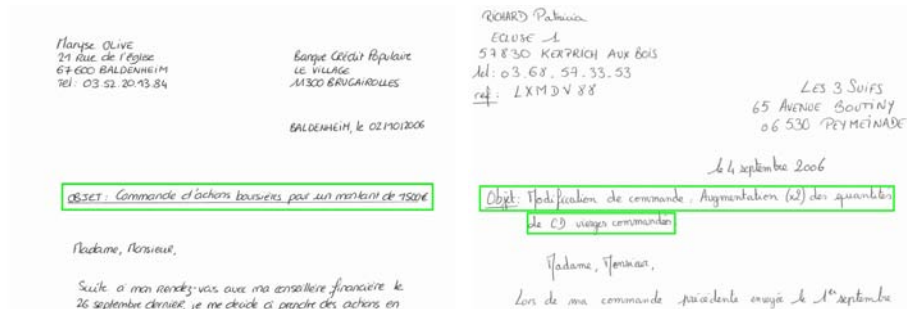 Maryse OLIVE
21 Rue de l'église
67600 BALDENHEIM
Tel : 03.52.20.43.84
Banque Crédit Populaire
LE VILLAGE
11300 BRUGAIROLLES
BALDENHEIM, le 02/10/2006
OBJET : Commande d'actions boursières pour un montant de 1500€
Madame, Monsieur,
Suite a mon Rendez-vous avec ma conseillère financière le
26 septembre dernier, je me décide a prendre des actions en
RICHARD Patricia
ECLUSE 1
57830 KERPRICH AUX BOIS
tel : 03.68.57.33.53
ref : LXMDV88
LES 3 SUIFS
65 AVENUE BOUTINY
06530 PEYMEINADE
le 4 septembre 2006
Objet : Modification de commande : Augmentation (x2) des quantités
de CD vierges commandés
Madame, Monsieur,
Lors de ma commande précédente envoyée le 1er septembre